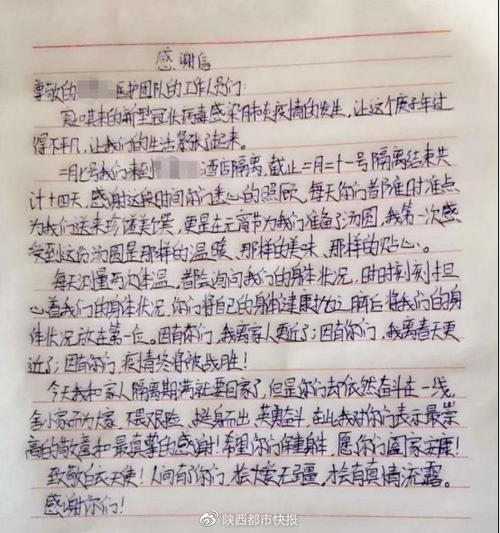 感谢信
尊敬的 医护团队的工作人员们:
突如其来的新型冠状病毒感染肺炎疫情的发生,让这个庚子年过
得不平凡,让我们的生活紧张了起来。
二月七号我们来到 酒店隔离,截止二月二十一号隔离结束共
计十四天,感谢这段时间你们悉心的照顾,每天你们都准时准点
为我们送来珍馐美馔,更是在元宵节为我们准备了汤圆,我第一次感
受到这份汤圆是那样的温暖、那样的美味、那样的贴心。
每天测量两次体温,都会询问我们的身体状况,时时刻刻担
心着我们的身体状况,你们将自己的身体健康抛之脑后将我们的身
体状况放在第一位。因有你们,我离家人更近了;因有你们,我离春天更
近了;因有你们,疫情终将被战胜!
今天我和家人隔离期满就要回家了,但是你们却依然奋斗在一线,
舍小家而为大家,不畏艰险,挺身而出,英勇奋斗,在此我对你们表示最崇
高的敬意和最真挚的感谢!希望你们保重身体,愿你们阖家安康!
致敬白衣天使!人间有了你们,才会大爱无疆,才会有真情流露。
感谢你们!
陕西都市快报